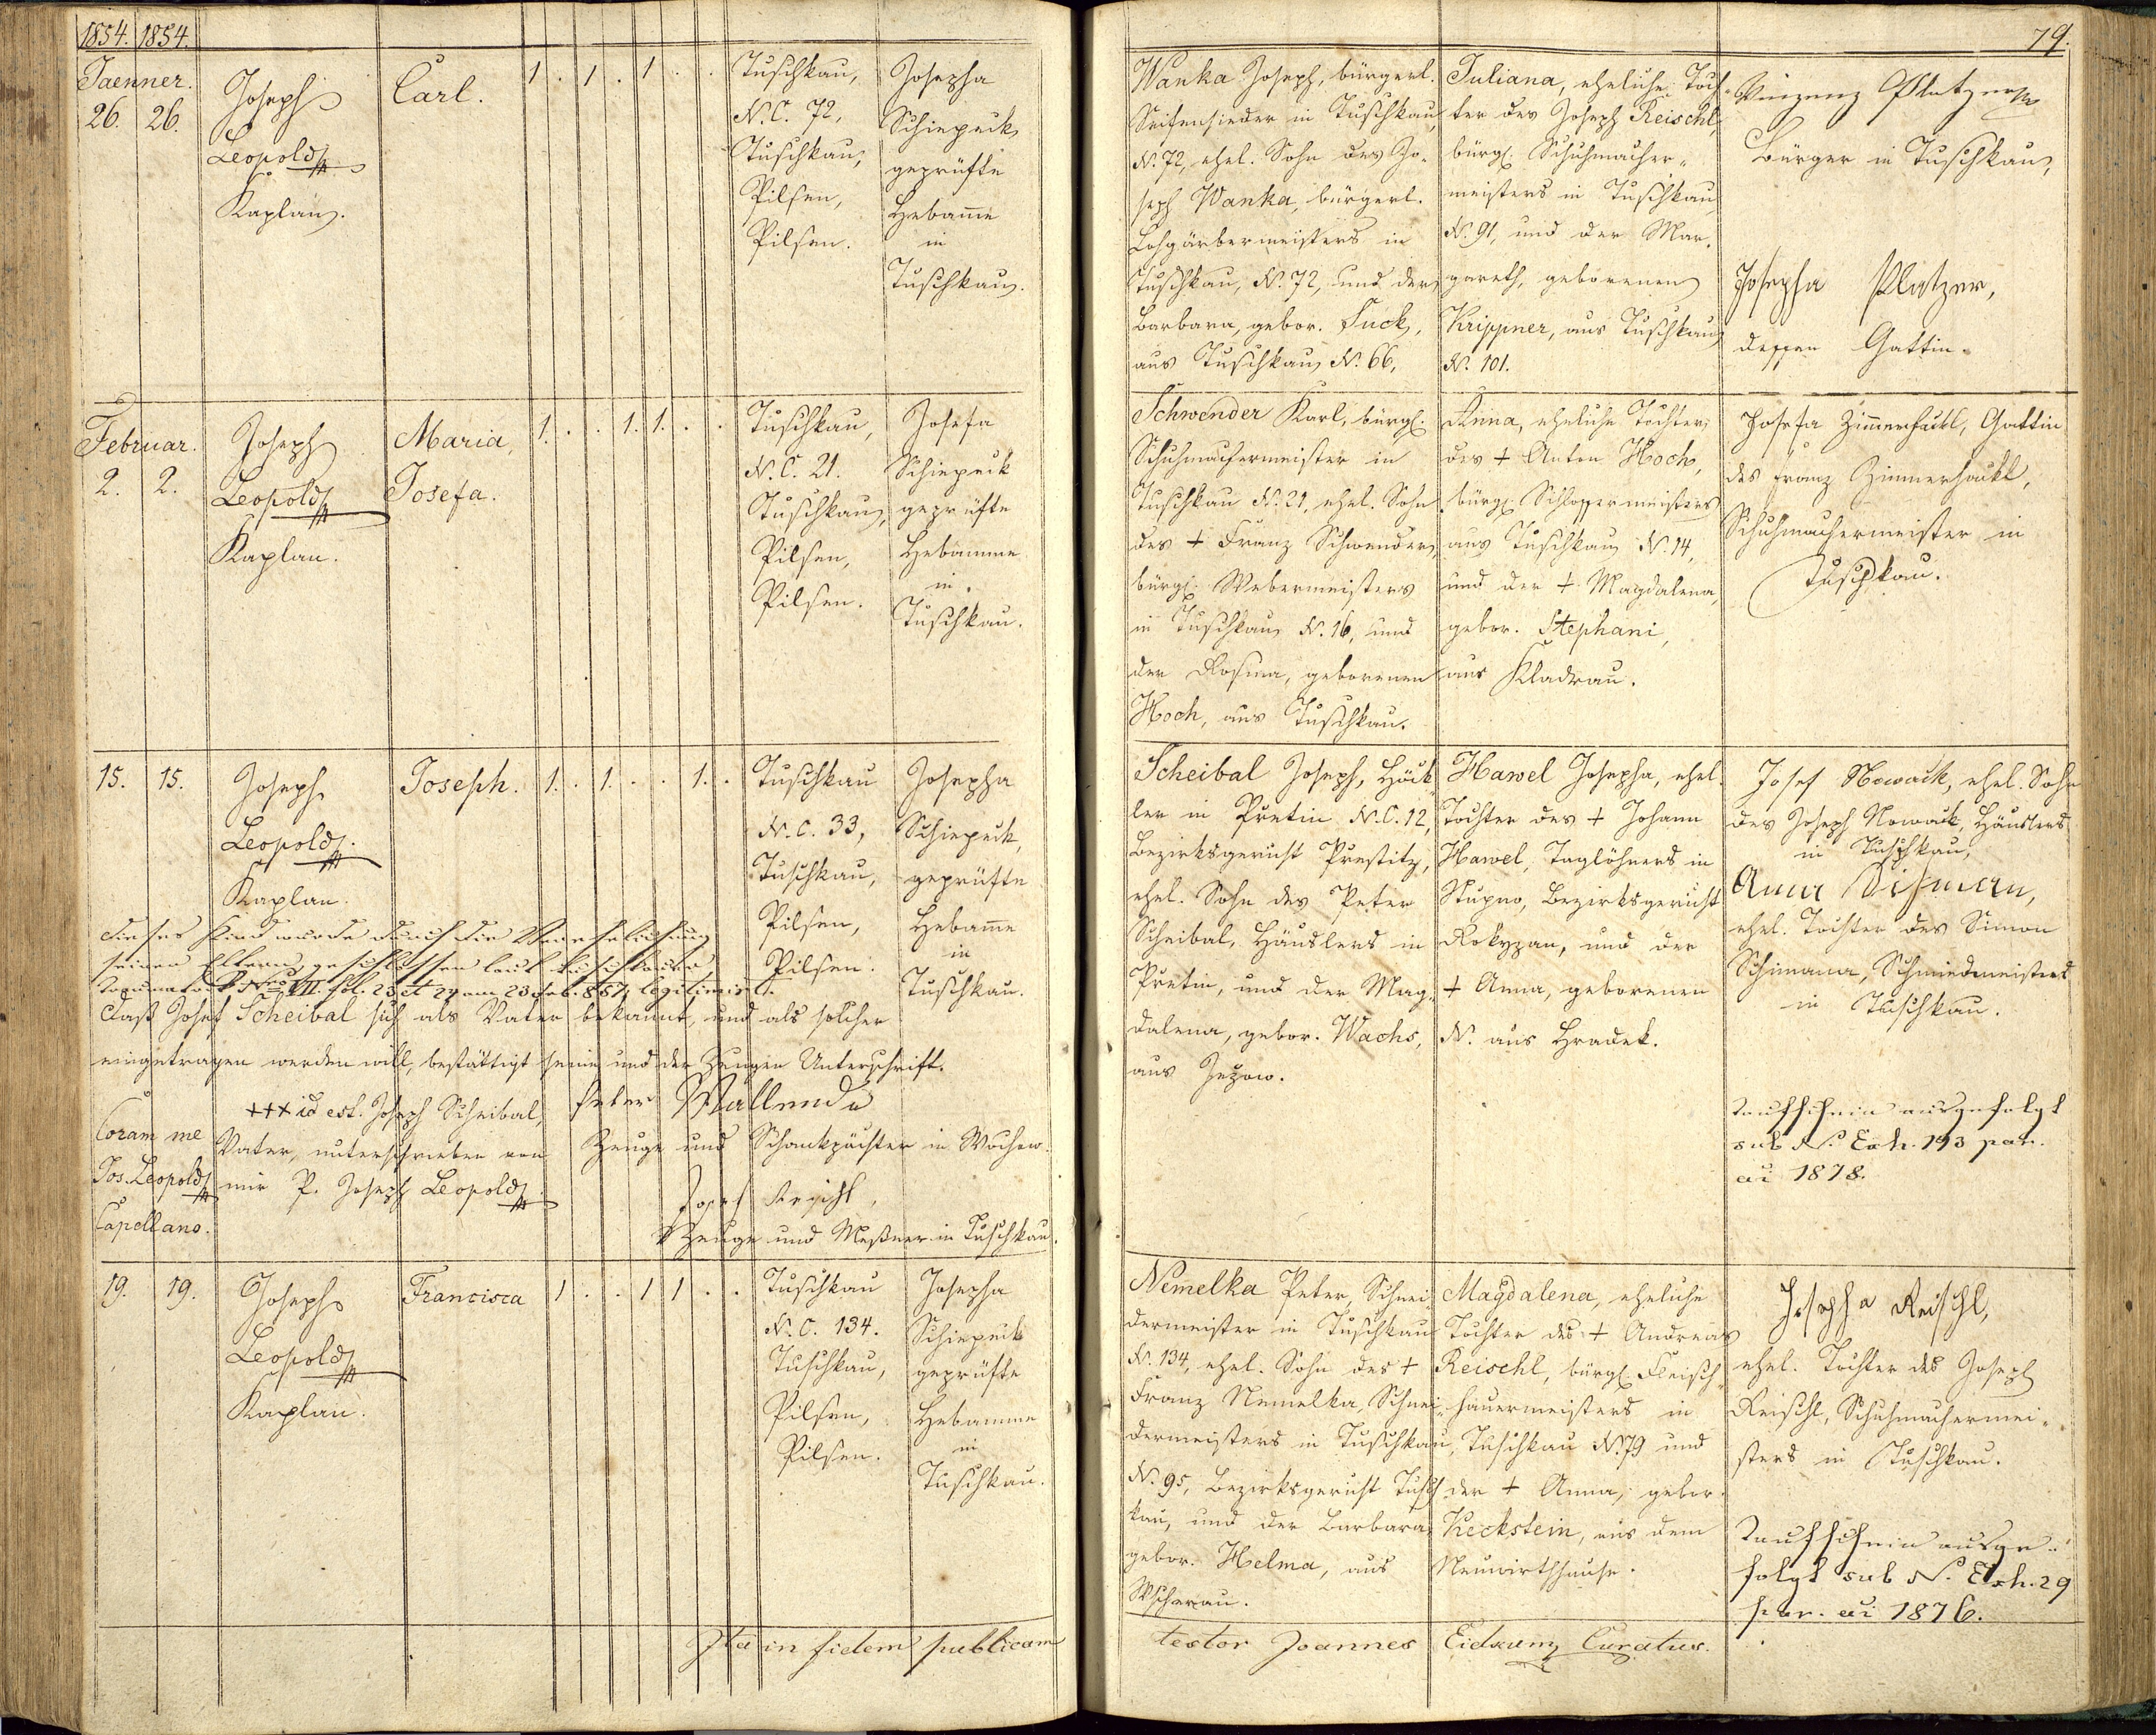 1854. 1854.
Jaenner.
26. 26.
Joseph
Leopold
Kaplan.
Carl.
1 . 1 . 1 . .
Tuschkau,
N.C. 72,
Tuschkau,
Pilsen,
Pilsen.
Josepha
Schiepek
geprüfte
Hebame
in
Tuschkau.
Februar.
2. 2.
Joseph
Leopold
Kaplan.
Maria,
Josefa.
1. . . 1. 1. . .
Tuschkau,
N.C. 21.
Tuschkau,
Pilsen,
Pilsen.
Josefa
Schiepek
geprüfte
Hebamme
in
Tuschkau.
15. 15.
Joseph
Leopold.
Kaplan.
Joseph.
1. . 1. . . 1. .
Tuschkau
N.C. 33,
Tuschkau,
Pilsen,
Pilsen.
Josepha
Schiepek,
geprüfte
Hebame
in
Tuschkau.
Dieses Kind wurde durch die Verehelichung
seiner Eltern, geschlossen laut
VII. fol. 23 et 24 am 23 Feb. 857, legitimirt.
Daß Josef Scheibal sich als Vater bekannt, und als solcher
eingetragen werden will, bestättigt seine und der Zeugen Unterschrift.
+++ id est. Joseph Scheibal,
Vater, unterschrieben von
mir P. Joseph Leopold
Coram me
Jos. Leopold
Capellano.
Peter Wallenda
Zeuge und Schankpächter in Wochow.
Josef Reischl,
Zeuge und Meßner in Tuschkau.
19. 19.
Joseph
Leopold
Kaplan.
Francisca
1 . . 1 1 . .
Tuschkau
N.C. 134.
Tuschkau,
Pilsen,
Pilsen.
Josepha
Schiepek
geprüfte
Hebamme
in
Tuschkau.
Ita in fidem publicam
79.
Wanka Joseph, bürgerl.
Seifensieder in Tuschkau,
N. 72, ehel. Sohn des Jo-
seph Wanka, bürgerl.
Lohgärbermeisters in
Tuschkau, N. 72, und der
Barbara, gebor. Fuck,
aus Tuschkau N. 66,
Juliana, eheliche Toch-
ter des Joseph Reischl,
bürgl. Schuhmacher-
meisters in Tuschkau
N. 91, und der Mar-
gareth, geborenen
Krippner, aus Tuschkau
N. 101.
Vinzenz Platzer
Bürger in Tuschkau,
Josepha Platzer,
dessen Gattin.
Schwender Karl, bürgl.
Schuhmachermeister in
Tuschkau N. 21, ehel. Sohn
des + Franz Schwender,
bürgl. Webermeisters
in Tuschkau N. 16, und
der Rosina, geborenen
Hoch, aus Tuschkau.
Anna, eheliche Tochter
des + Anton Hoch,
bürgl. Schlossermeisters
aus Tuschkau N. 14,
und der + Magdalena,
gebor. Stephani,
aus Kladrau.
Josefa Zimmerhackl, Gattin
des Franz Zimmerhackl,
Schuhmachermeister in
Tuschkau.
Scheibal Joseph, Höck-
ler in Pretin N.C. 12,
Bezirksgericht Prestitz,
ehel. Sohn des Peter
Scheibal, Häuslers in
Pretin, und der Mag-
dalena, gebor. Wachs,
aus Jezow.
Hawel Josepha, ehel.
Tochter des + Johann
Hawel, Taglöhners in
Stupno, Bezirksgericht
Rokyzan, und der
+ Anna, geborenen
N. aus Hradek.
Josef Nowack, ehel. Sohn
des Joseph Nowack, Häuslers
in Tuschkau,
Anna Schiman,
ehel. Tochter des Simon
Schimana, Schmiedmeisters
in Tuschkau.
Taufschein ausgefolgt
sub N. Exh. 193 par.
ai 1878.
Nemelka Peter, Schnei-
dermeister in Tuschkau
N. 134, ehel. Sohn des +
Franz Nemelka, Schnei-
dermeisters in Tuschkau,
N. 95, Bezirksgericht Tusch
kau, und der Barbara
gebor. Helma, aus
Wscherau.
Magdalena, eheliche
Tochter des + Andreas
Reischl, bürgl. Fleisch-
hauermeisters in
Tuschkau N. 79 und
der + Anna, gebor.
Keckstein, aus dem
Neuwirthshause.
Josepha Reischl,
ehel. Tochter des Joseph
Reischl, Schuhmachermei-
sters in Tuschkau.
Taufschein ausge-
folgt sub N. Exh. 29
par. ai 1876.
testor Joannes Curatus.